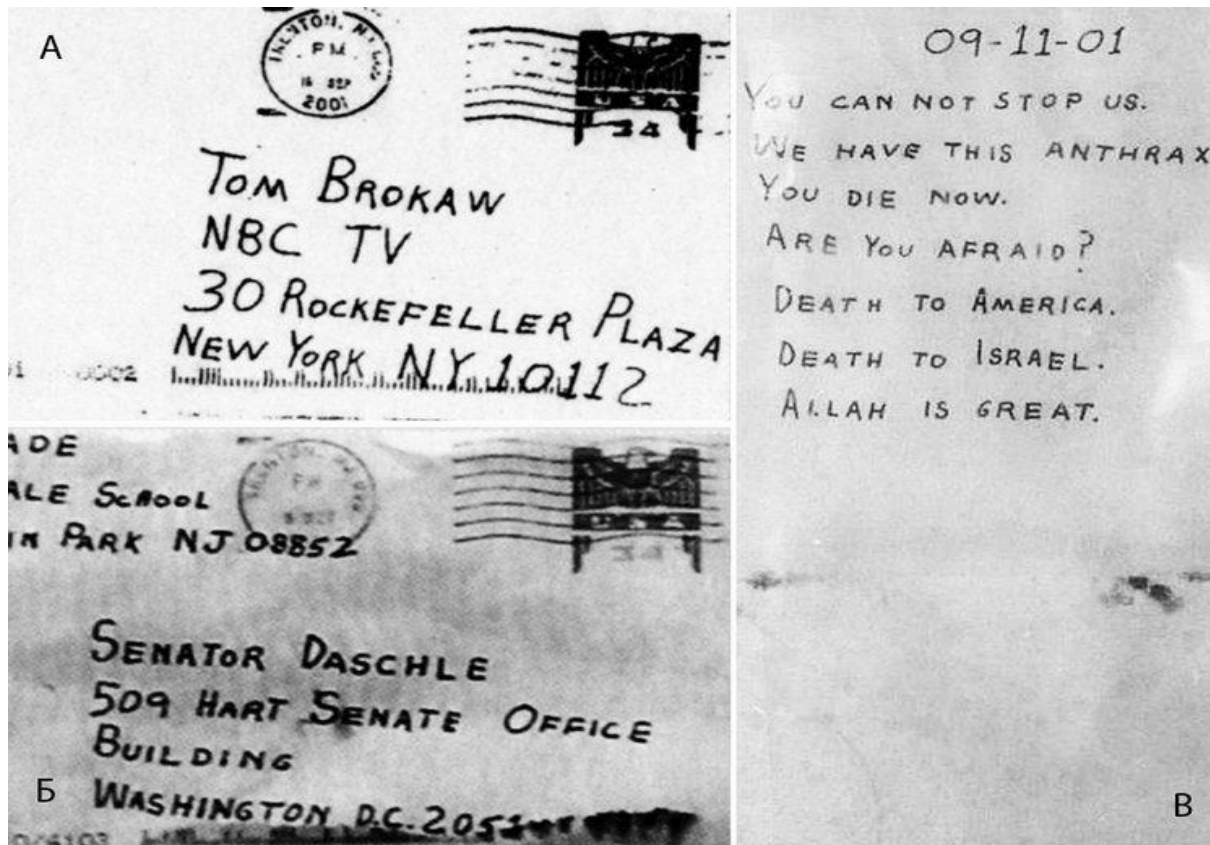 А
TRENTON, N.J.
PM
18 SEP
2001
USA
34
TOM BROKAW
NBC TV
30 ROCKEFELLER PLAZA
NEW YORK NY 10112
ADE
ALE SCHOOL
PARK NJ 08852
PM
34
SENATOR DASCHLE
509 HART SENATE OFFICE
BUILDING
WASHINGTON D.C. 205
Б
09-11-01
YOU CAN NOT STOP US.
WE HAVE THIS ANTHRAX
YOU DIE NOW.
ARE YOU AFRAID?
DEATH TO AMERICA.
DEATH TO ISRAEL.
ALLAH IS GREAT.
В